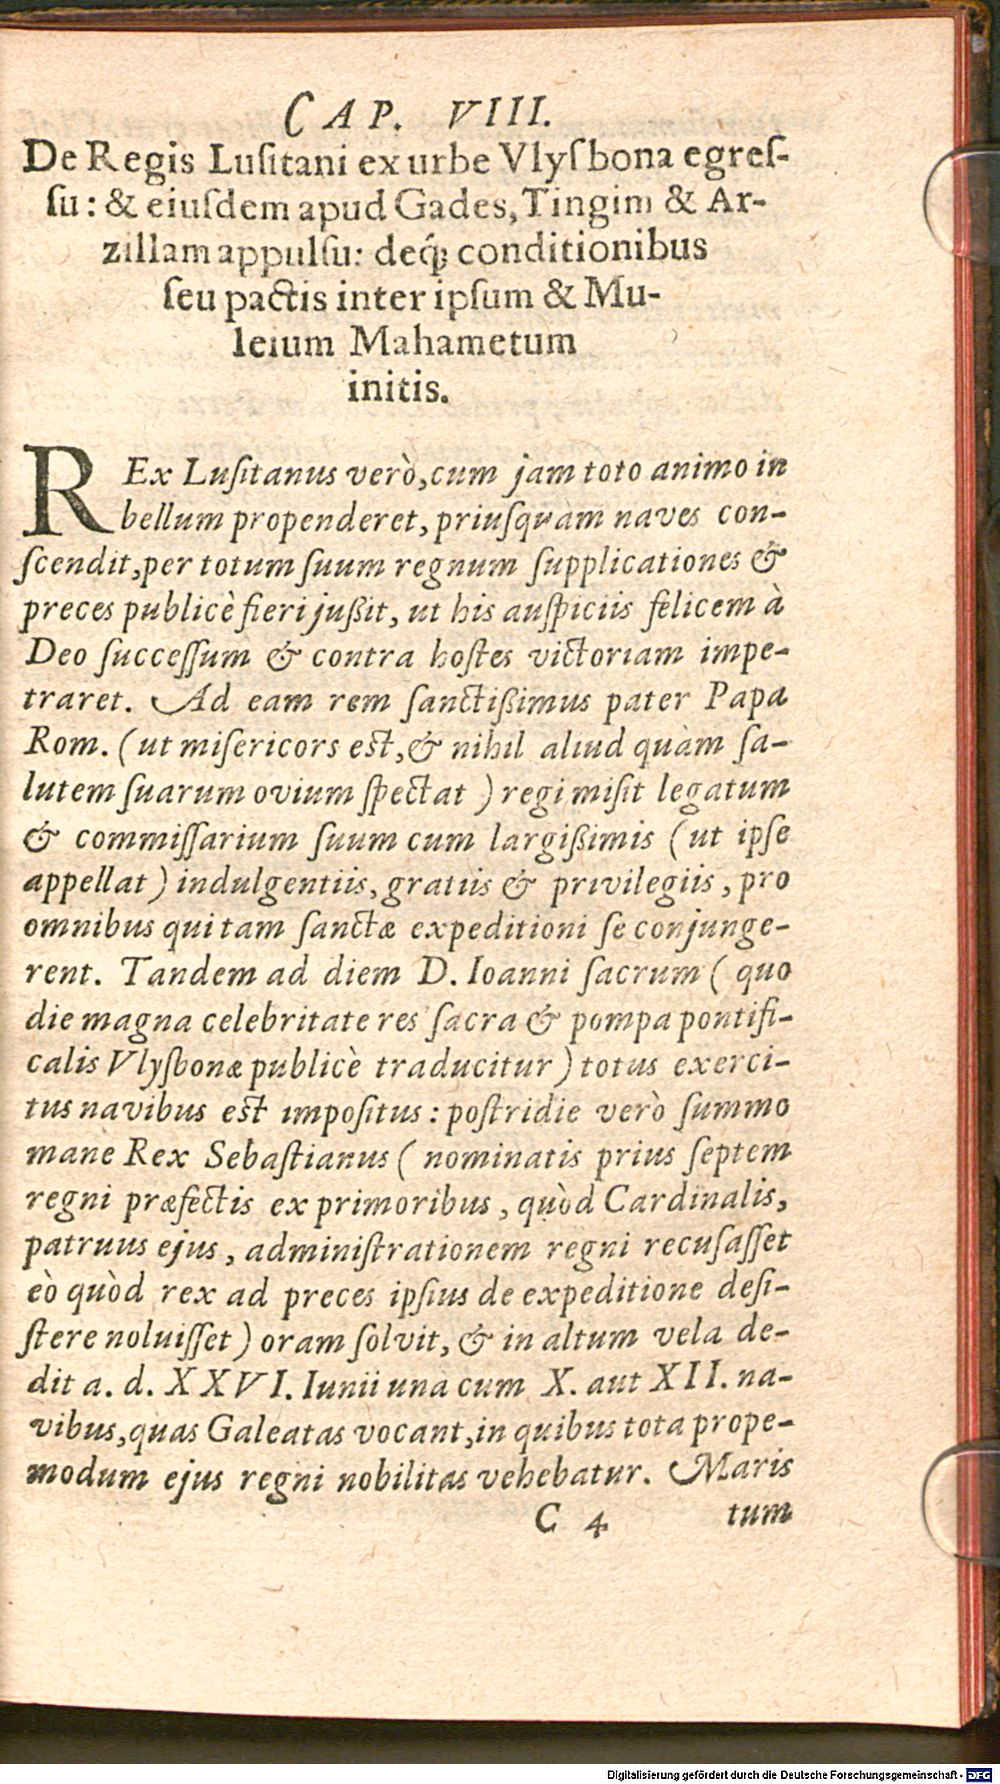 CAP. VIII.
De Regis Luſitani ex urbe Vlyſbona egreſ-
ſu: & eiuſdem apud Gades, Tingim & Ar-
zillam appulſu: deq́; conditionibus
ſeu pactis inter ipſum & Mu-
leium Mahametum
initis.
REx Luſitanus verò, cum jam toto animo in
bellum propenderet, priuſquàm naves con-
ſcendit, per totum ſuum regnum ſupplicationes &
preces publicè fieri jußit, ut his auſpiciis felicem à
Deo ſucceſſum & contra hoſtes victoriam impe-
traret. Ad eam rem ſanctißimus pater Papa
Rom. (ut miſericors est, & nihil aliud quàm ſa-
lutem ſuarum ovium ſpectat) regi miſit legatum
& commiſſarium ſuum cum largißimis (ut ipſe
appellat) indulgentiis, gratiis & privilegiis, pro
omnibus qui tam ſanctæ expeditioni ſe conjunge-
rent. Tandem ad diem D. Ioanni ſacrum (quo
die magna celebritate res ſacra & pompa pontifi-
calis Vlyſbonæ publicè traducitur) totus exerci-
tus navibus est impoſitus: poſtridie verò ſummo
mane Rex Sebaſtianus (nominatis prius ſeptem
regni præfectis ex primoribus, quòd Cardinalis,
patruus ejus, adminiſtrationem regni recuſaſſet
eò quòd rex ad preces ipſius de expeditione deſi-
ſtere noluiſſet) oram ſolvit, & in altum vela de-
dit a. d. XXVI. Iunii una cum X. aut XII. na-
vibus, quas Galeatas vocant, in quibus tota prope-
modum ejus regni nobilitas vehebatur. Maris
C 4 tum
Digitalisierung gefördert durch die Deutsche Forschungsgemeinschaft - DFG